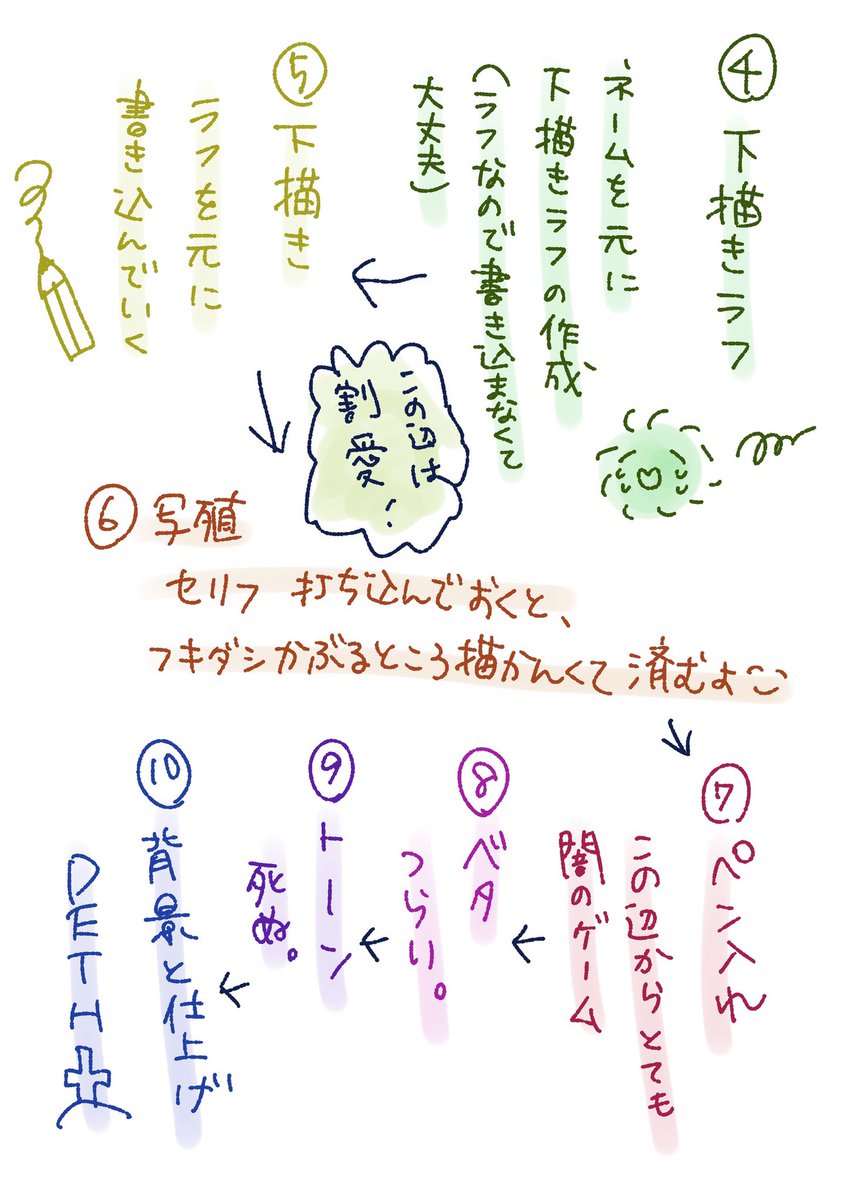 ④下描きラフ
ネームを元に
下描きラフの作成
(ラフなので書き込まなくて
大丈夫)
⑤下描き
ラフを元に
書き込んでいく
この辺は
割愛!
⑥写殖
セリフ 打ち込んでおくと、
フキダシかぶるところ描かんくて済むよ
⑦ペン入れ
この辺からとても
闇のゲーム
⑧ベタ
つらい。
⑨トーン
死ぬ。
⑩背景と仕上げ
DETH